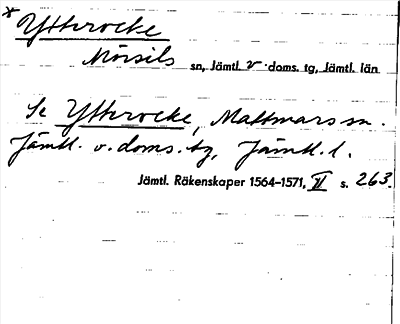 * Ytterocke
Mörsils sn, Jämtl. v. doms. tg, Jämtl. län
Se Ytterocke, Mattmars sn.
Jämtl. v. doms. tg, Jämtl. l.
Jämtl. Räkenskaper 1564-1571, II s. 263.